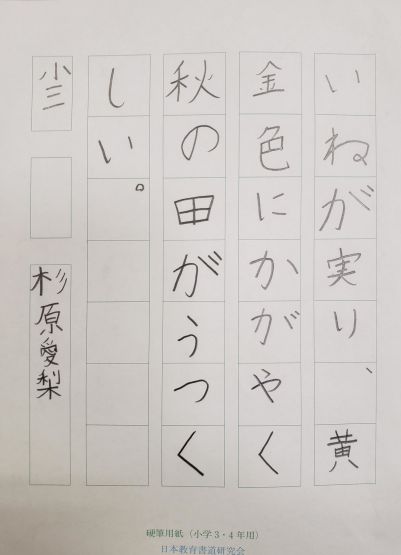 いねが実り、黄
金色にかがやく
秋の田がうつく
しい。
小三
杉原愛梨
硬筆用紙(小学3・4年用)
日本教育書道研究会